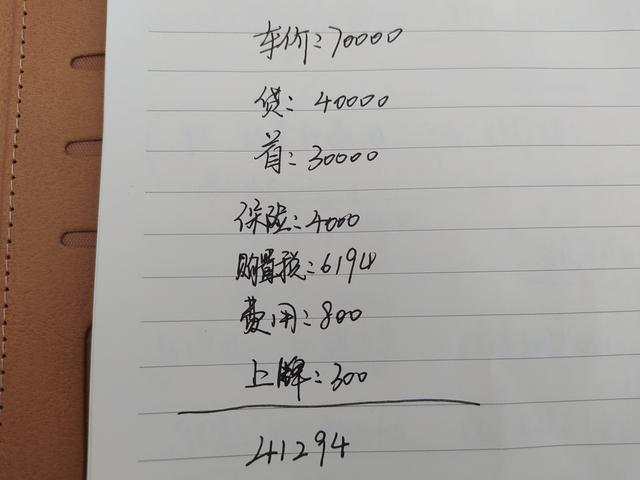 车价:70000
贷:40000
首:30000
保险:4000
购置税:6194
费用:800
上牌:300
41294